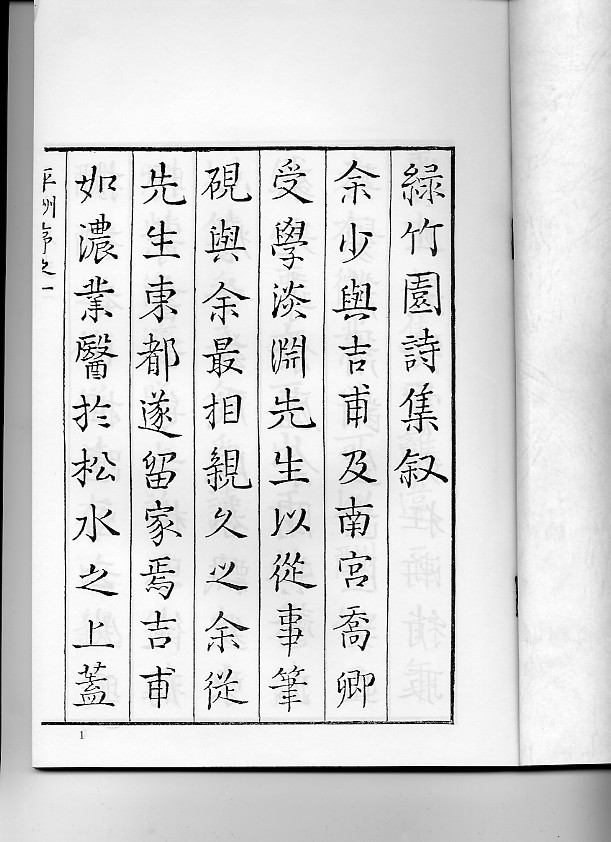 緑竹園詩集叙
余少與吉甫及南宮喬卿
受學淡淵先生以從事筆
硯與余最相親久之余從
先生東都遂留家焉吉甫
如濃業醫於松水之上蓋
平洲序之一
1